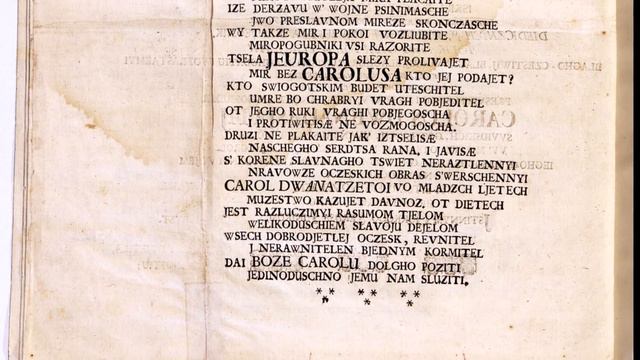 IZE DERZAVU W' WOJNE PSINIMASCHE
JWO PRESLAVNOM MIREZE SKONCZASCHE
WY TAKZE MIR I POKOI VOZLIUBITE
MIROPOGUBNIKI VSI RAZORITE
TSELA JEUROPA SLEZY PROLIVAJET
MIR BEZ CAROLUSA KTO JEJ PODAJET?
KTO SWIOGOTSKIM BUDET UTESCHITEL
UMRE BO CHRABRYI VRAGH POBJEDITEL
OT JEGHO RUKI VRAGHI POBJEGOSCHA
I PROTIWITISÆ NE VOZMOGOSCHA.
DRUZI NE PLAKAITE JAK' IZTSELISÆ
NASCHEGHO SERDTSA RANA, I JAVISÆ
S' KORENE SLAVNAGHO TSWIET NERAZTLENNYI
NRAVOWZE OCZESKICH OBRAS S'WERSCHENNYI
CAROL DWANATZETOI VO MLADZCH LJETECH
MUZESTWO KAZUJET DAVNOZ, OT DIETECH
JEST RAZLUCZIMYI RASUMOM TJELOM
WELIKODUSCHIEM SLAVOJU DEJELOM
WSECH DOBRODJETLEJ OCZESK, REVNITEL
J NERAWNITELEN BJEDNYM KORMITEL
DAI BOZE CAROLU DOLGHO POZITI
JEDINODUSCHNO JEMU NAM SLUZITI.